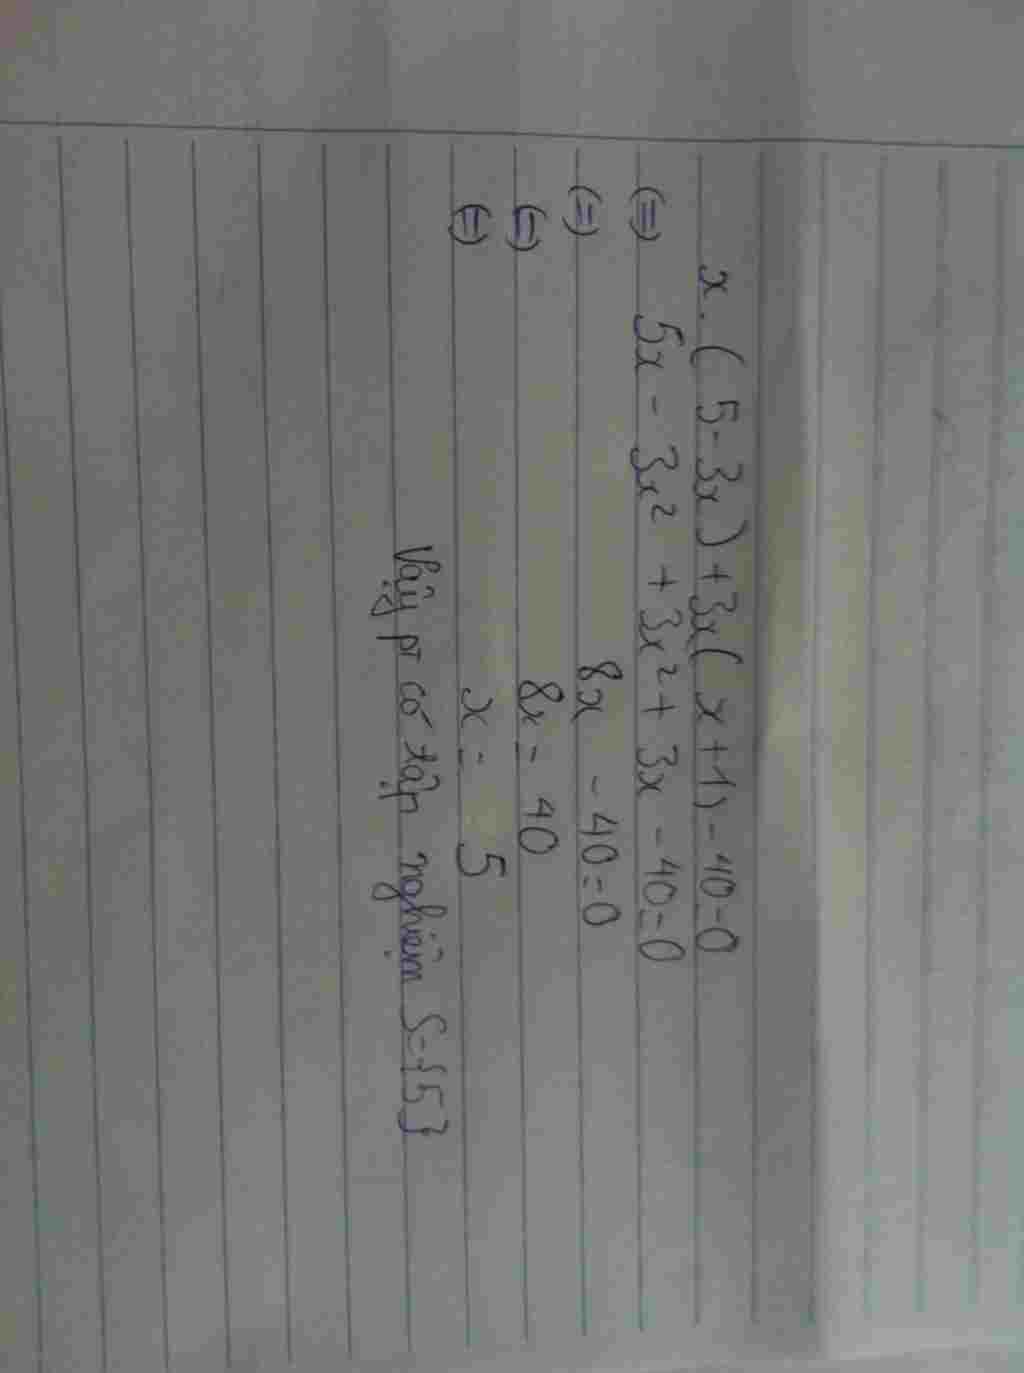 x. ( 5 - 3x) + 3x( x + 1) - 40 = 0
(=) 5x - 3x² + 3x² + 3x - 40 = 0
(=) 8x - 40 = 0
(=) 8x = 40
(=) x = 5
Vậy pt có tập nghiệm S = {5}